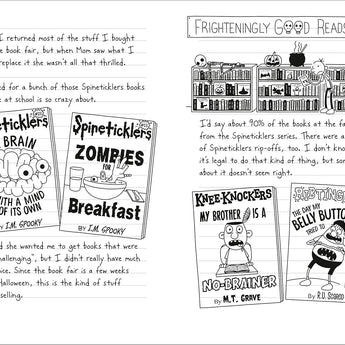 I returned most of the stuff I bought
the book fair, but when Mom saw what I
replace it she wasn't all that thrilled.
ed for a bunch of those Spineticklers books
at school is so crazy about.
Spineticklers
BRAIN
WITH A MIND
OF ITS OWN
BY I.M. SPOOKY
Spineticklers
ZOMBIES
FOR
Breakfast
BY I.M. SPOOKY
d she wanted me to get books that were
llenging", but I didn't really have much
ice. Since the book fair is a few weeks
Halloween, this is the kind of stuff
selling.
FRIGHTENINGLY GOOD READS
I'd say about 90% of the books at the fa
from the Spineticklers series. There were a
of Spineticklers rip-offs, too. I don't know
it's legal to do that kind of thing, but som
about it doesn't seem right.
KNEE-KNOCKERS
MY BROTHER IS A
NO-BRAINER
BY M.T. GRAVE
THE DAY MY
BELLY BUTTON
TRIED TO
BY R.U. SCARED